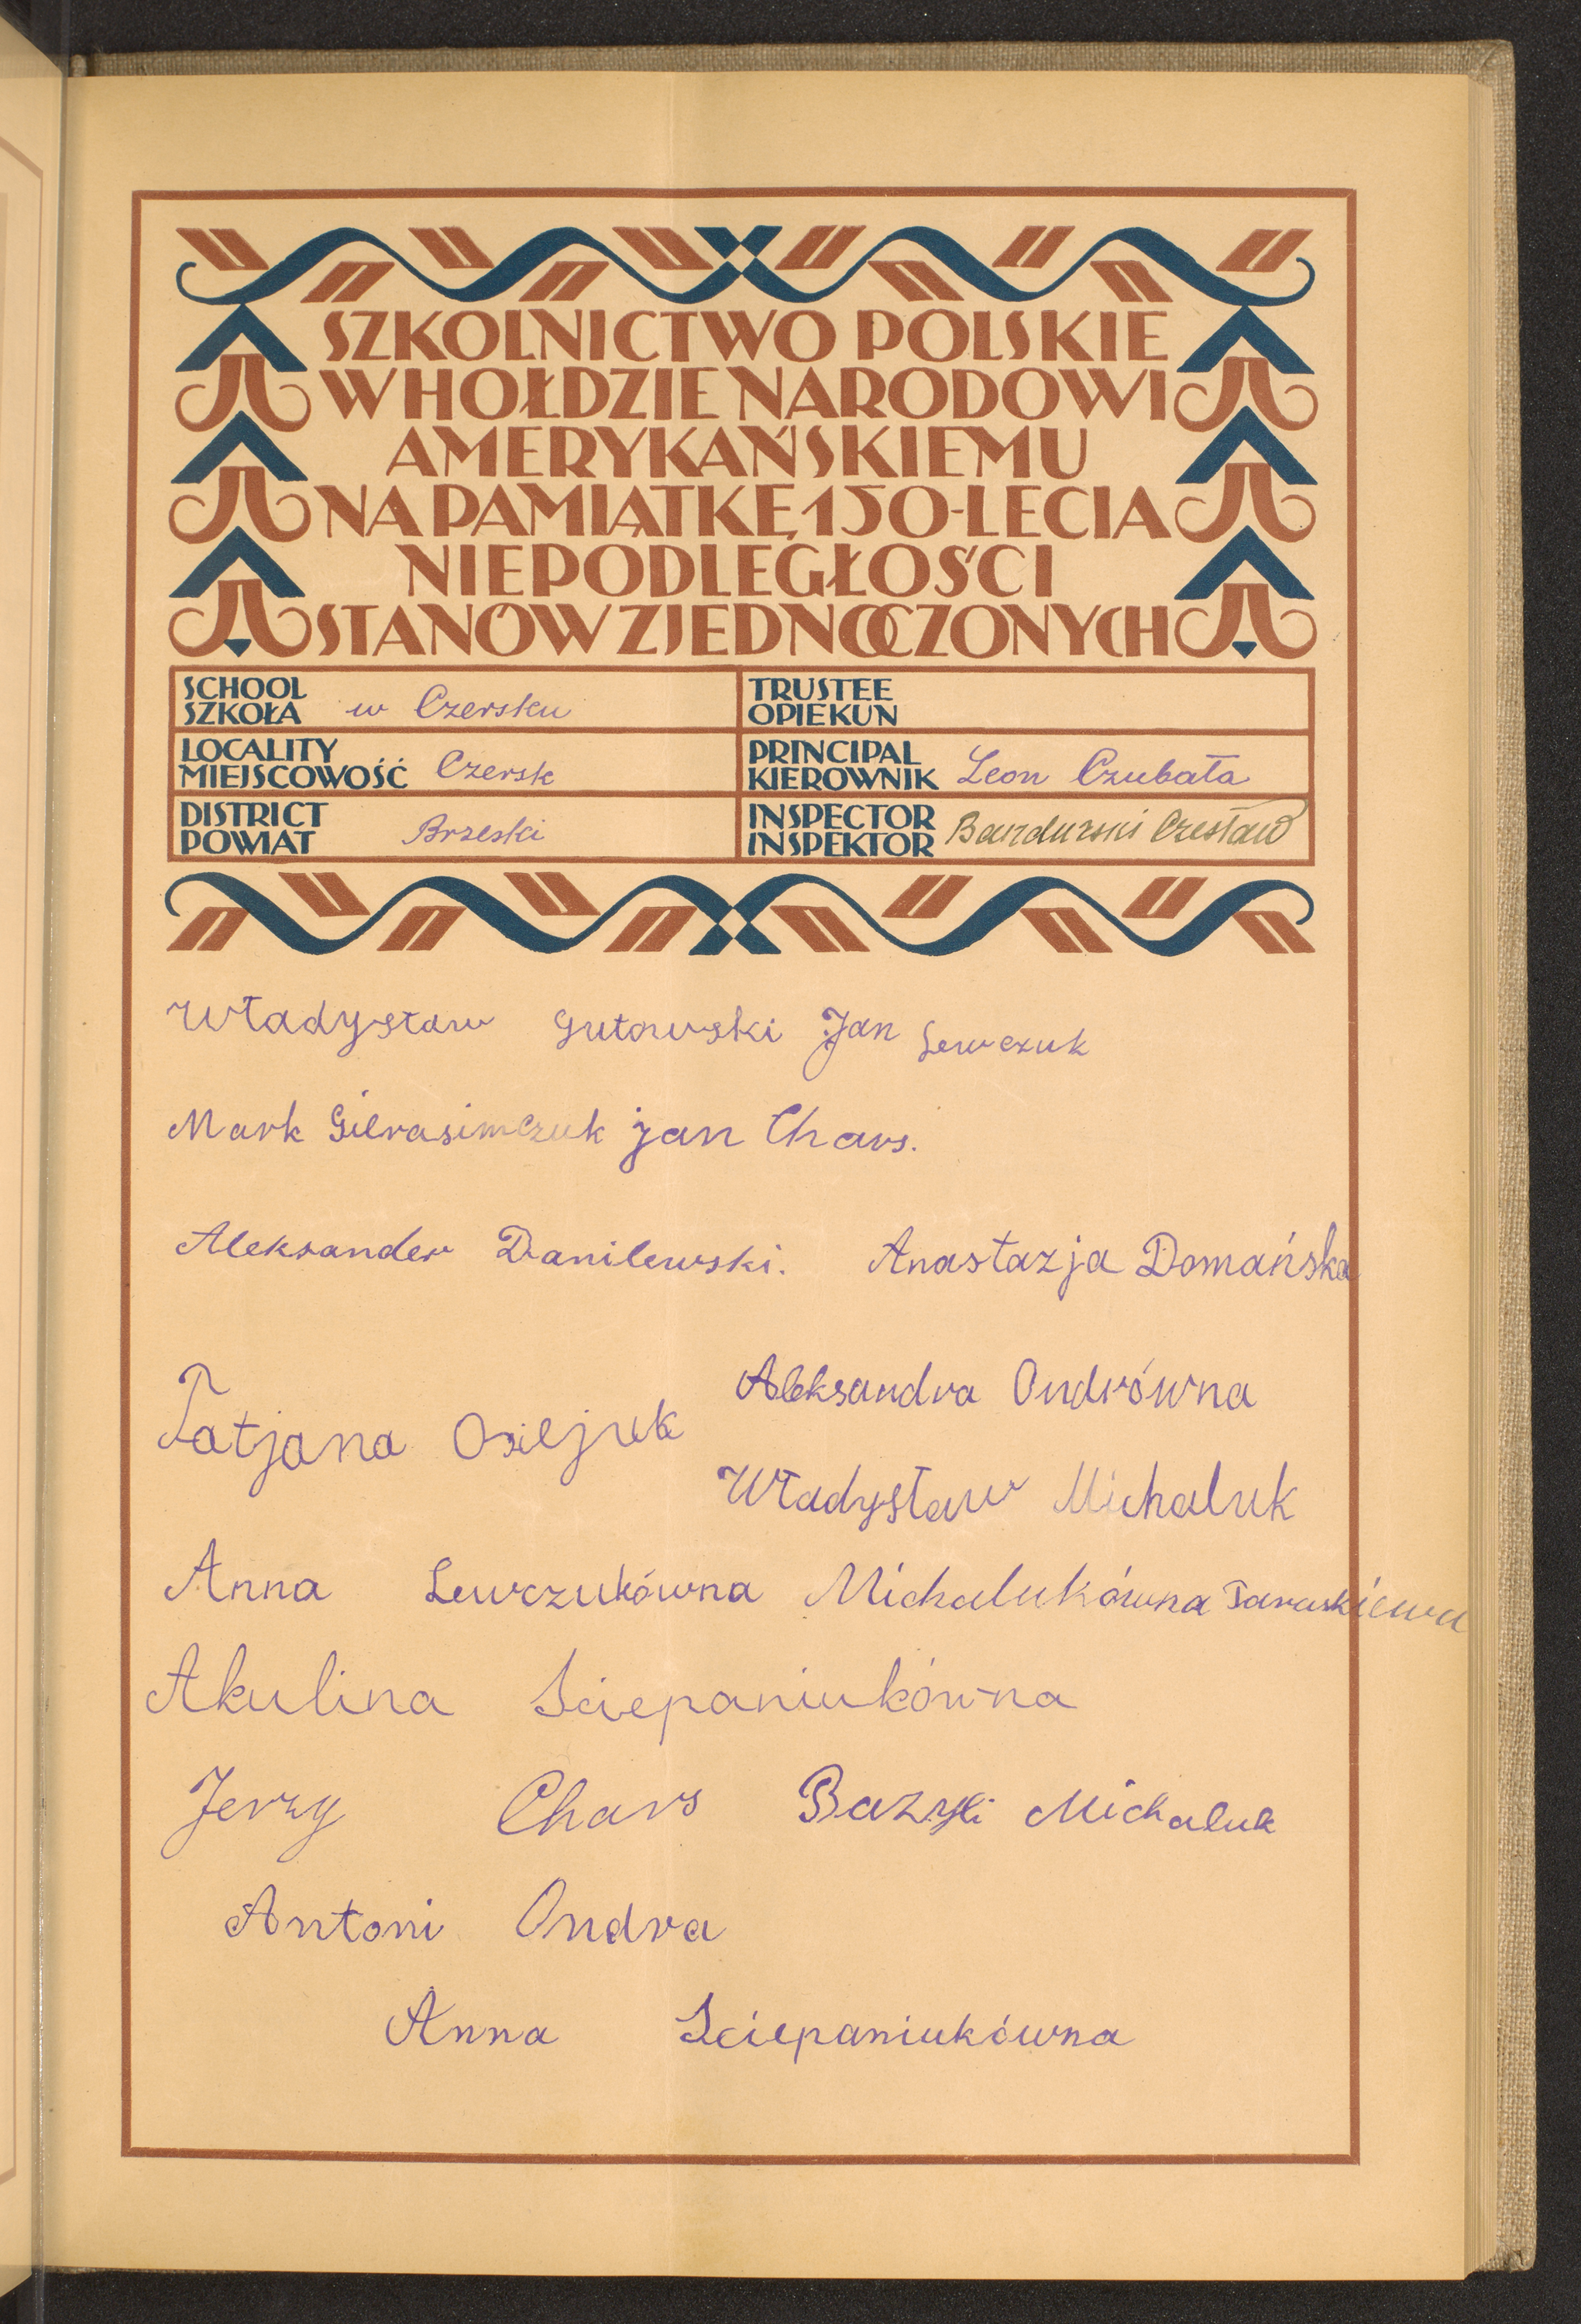 SZKOLNICTWO POLSKIE
W HOŁDZIE NARODOWI
AMERYKAŃSKIEMU
NA PAMIĄTKĘ 150-LECIA
NIEPODLEGŁOŚCI
STANÓW ZJEDNOCZONYCH
SCHOOL
SZKOŁA w Czersku
TRUSTEE
OPIEKUN
LOCALITY
MIEJSCOWOŚĆ Czersk
PRINCIPAL
KIEROWNIK Leon Czubała
DISTRICT
POWIAT Brzeski
INSPECTOR
INSPEKTOR Bandurski Czesław
Władysław Gutowski Jan Lewczuk
Mark Gierasimczuk jan Chars.
Aleksander Danilewski. Anastazja Domańska
Aleksandra Ondrówna
Tatjana Osiejuk
Władysław Michaluk
Anna Lewczukówna Michalukówna
Akulina Sciepaniukówna
Jerzy Chars Bazyli Michaluk
Antoni Ondra
Anna Sciepaniukówna